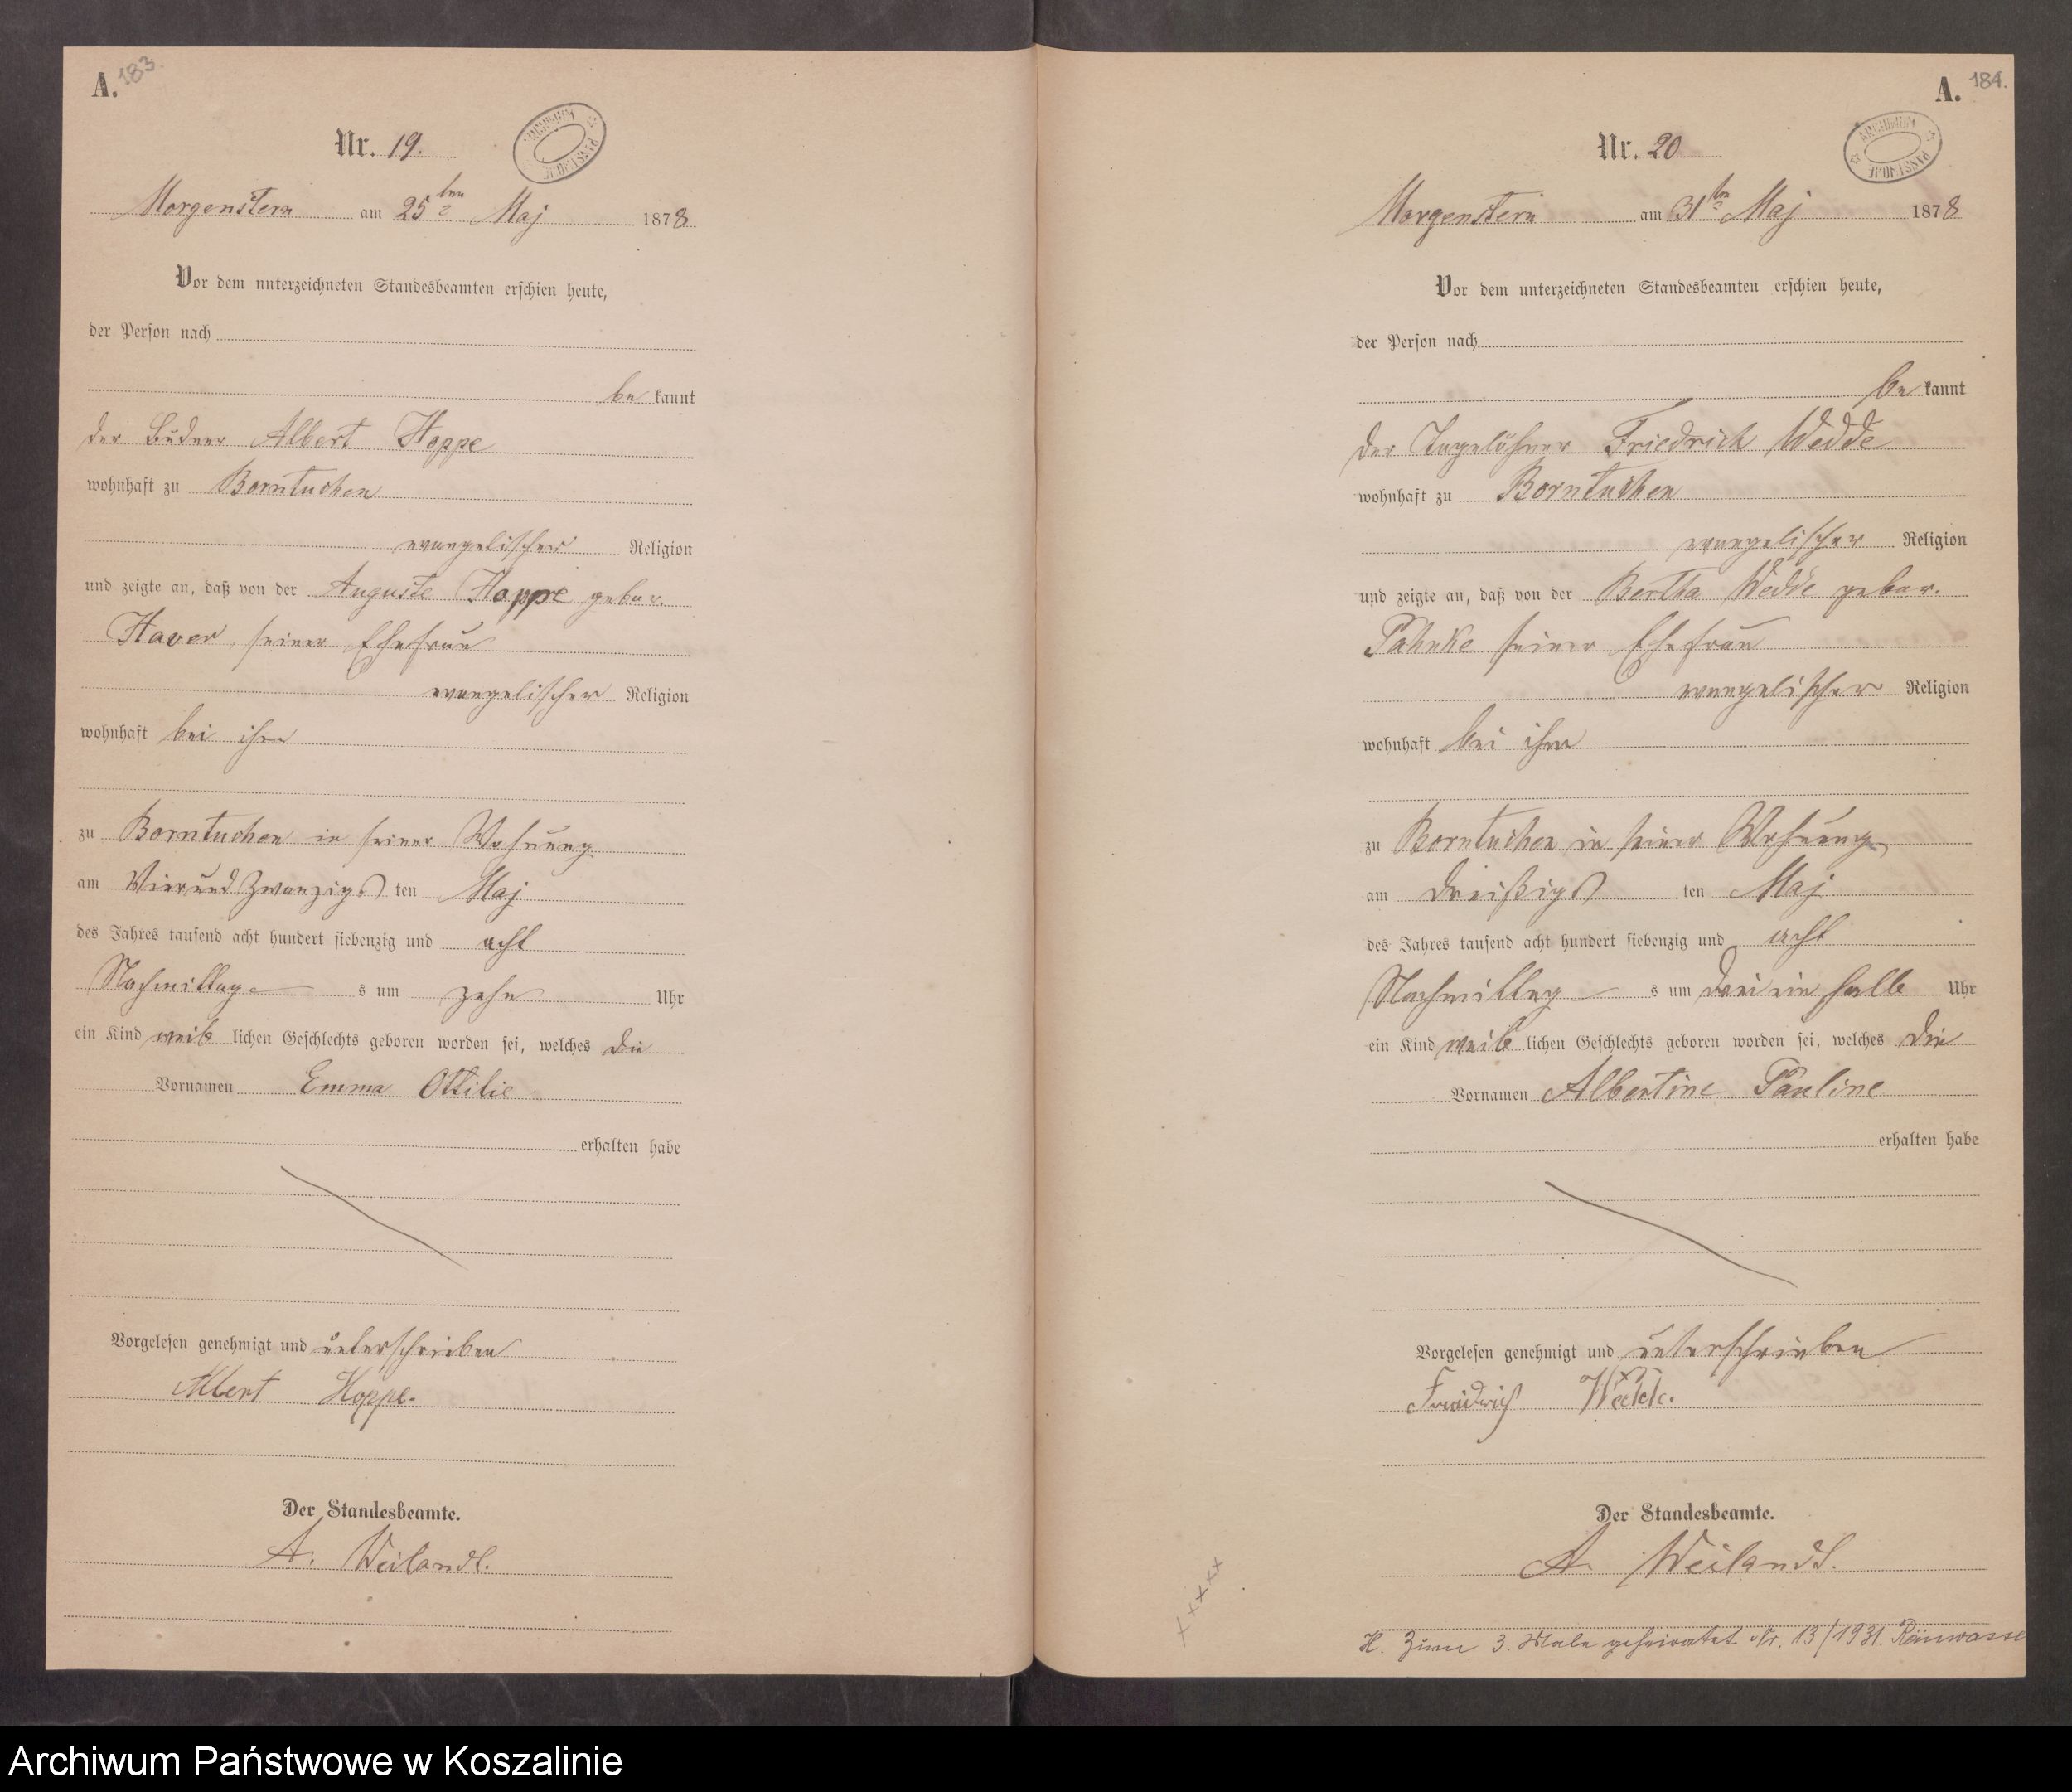 A. 183.
Nr. 19.
ARCHIWUM PAŃSTWOWE
Morgenstern am 25ten Maj 1878
Vor dem unterzeichneten Standesbeamten erschien heute,
der Person nach
be kannt
der Büdner Albert Hoppe
wohnhaft zu Borntuchen
evangelischer Religion
und zeigte an, daß von der Auguste Hoppe gebor.
Haver, seiner Ehefrau
evangelischer Religion
wohnhaft bei ihm
zu Borntuchen in seiner Wohnung
am Vierundzwanzigs ten Maj
des Jahres tausend acht hundert siebenzig und acht
Nachmittag s um zehn Uhr
ein Kind weib lichen Geschlechts geboren worden sei, welches die
Vornamen Emma Ottilie
erhalten habe
Vorgelesen genehmigt und unterschrieben
Albert Hoppe.
Der Standesbeamte.
A. Weilandt.
A. 184.
Nr. 20
ARCHIWUM PAŃSTWOWE
Morgenstern am 31ten Maj 1878
Vor dem unterzeichneten Standesbeamten erschien heute,
der Person nach
be kannt
der Tagelöhner Friedrich Wedde
wohnhaft zu Borntuchen
evangelischer Religion
und zeigte an, daß von der Bertha Wedde gebor.
Pahnke seiner Ehefrau
evangelischer Religion
wohnhaft bei ihm
zu Borntuchen in seiner Wohnung
am dreißigs ten Maj
des Jahres tausend acht hundert siebenzig und acht
Nachmittag s um drei ein halb Uhr
ein Kind weib lichen Geschlechts geboren worden sei, welches die
Vornamen Albertine Pauline
erhalten habe
Vorgelesen genehmigt und unterschrieben
Friedrich Wedde.
Der Standesbeamte.
A. Weilandt.
xxxxx
H. Zum 3. Male geheiratet Nr. 13/1931.
Archiwum Państwowe w Koszalinie